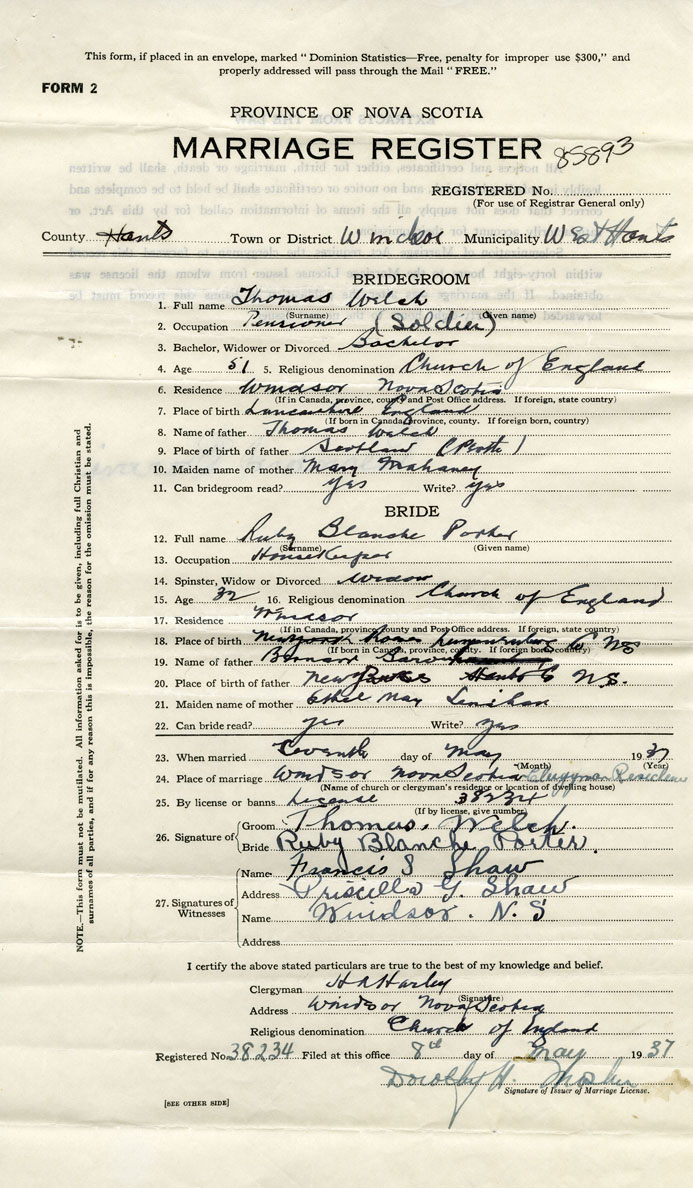 This form, if placed in an envelope, marked "Dominion Statistics—Free, penalty for improper use $300," and
properly addressed will pass through the Mail "FREE."
FORM 2
PROVINCE OF NOVA SCOTIA
MARRIAGE REGISTER 85893
REGISTERED No.
(For use of Registrar General only)
County Hants Town or District Windsor Municipality West Hants
BRIDEGROOM
1. Full name Thomas Welch
(Surname) (Given name)
2. Occupation Pensioner (Soldier)
3. Bachelor, Widower or Divorced Bachelor
4. Age 51 5. Religious denomination Church of England
6. Residence Windsor Nova Scotia
(If in Canada, province, county and Post Office address. If foreign, state country)
7. Place of birth Lancashire England
(If born in Canada, province, county. If foreign born, country)
8. Name of father Thomas Welch
9. Place of birth of father Scotland (Perth)
10. Maiden name of mother Mary Mahaney
11. Can bridegroom read? yes Write? yes
BRIDE
12. Full name Ruby Blanche Porter
(Surname) (Given name)
13. Occupation HouseKeeper
14. Spinster, Widow or Divorced Widow
15. Age 32 16. Religious denomination Church of England
17. Residence Windsor
(If in Canada, province county and Post Office address. If foreign, state country)
18. Place of birth Co NS
(If born in Canada, province, county. If foreign born, country)
19. Name of father
20. Place of birth of father Hants Co N.S.
21. Maiden name of mother Ethel May Lenihan
22. Can bride read? yes Write? yes
23. When married Seventh day of May 1937
(Month) (Year)
24. Place of marriage Windsor Nova Scotia Clergyman Residence
(Name of church or clergyman's residence or location of dwelling house)
25. By license or banns License 38234
(If by license, give number)
26. Signature of Groom Thomas. Welch.
Bride Ruby Blanche Porter.
27. Signatures of Witnesses
Name Francis S Shaw
Address Priscilla G. Shaw
Name Windsor. N.S
Address
I certify the above stated particulars are true to the best of my knowledge and belief.
Clergyman H A Harley
(Signature)
Address Windsor Nova Scotia
Religious denomination Church of England
Registered No. 38234 Filed at this office 8th day of May 1937
Dorothy H.
Signature of Issuer of Marriage License.
[SEE OTHER SIDE]
NOTE.—This form must not be mutilated. All information asked for is to be given, including full Christian and
surnames of all parties, and if for any reason this is impossible, the reason for the omission must be stated.